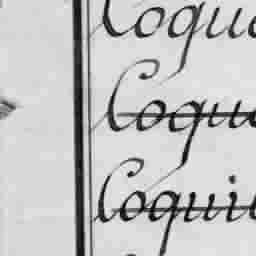 Coque
Coque
Coqui